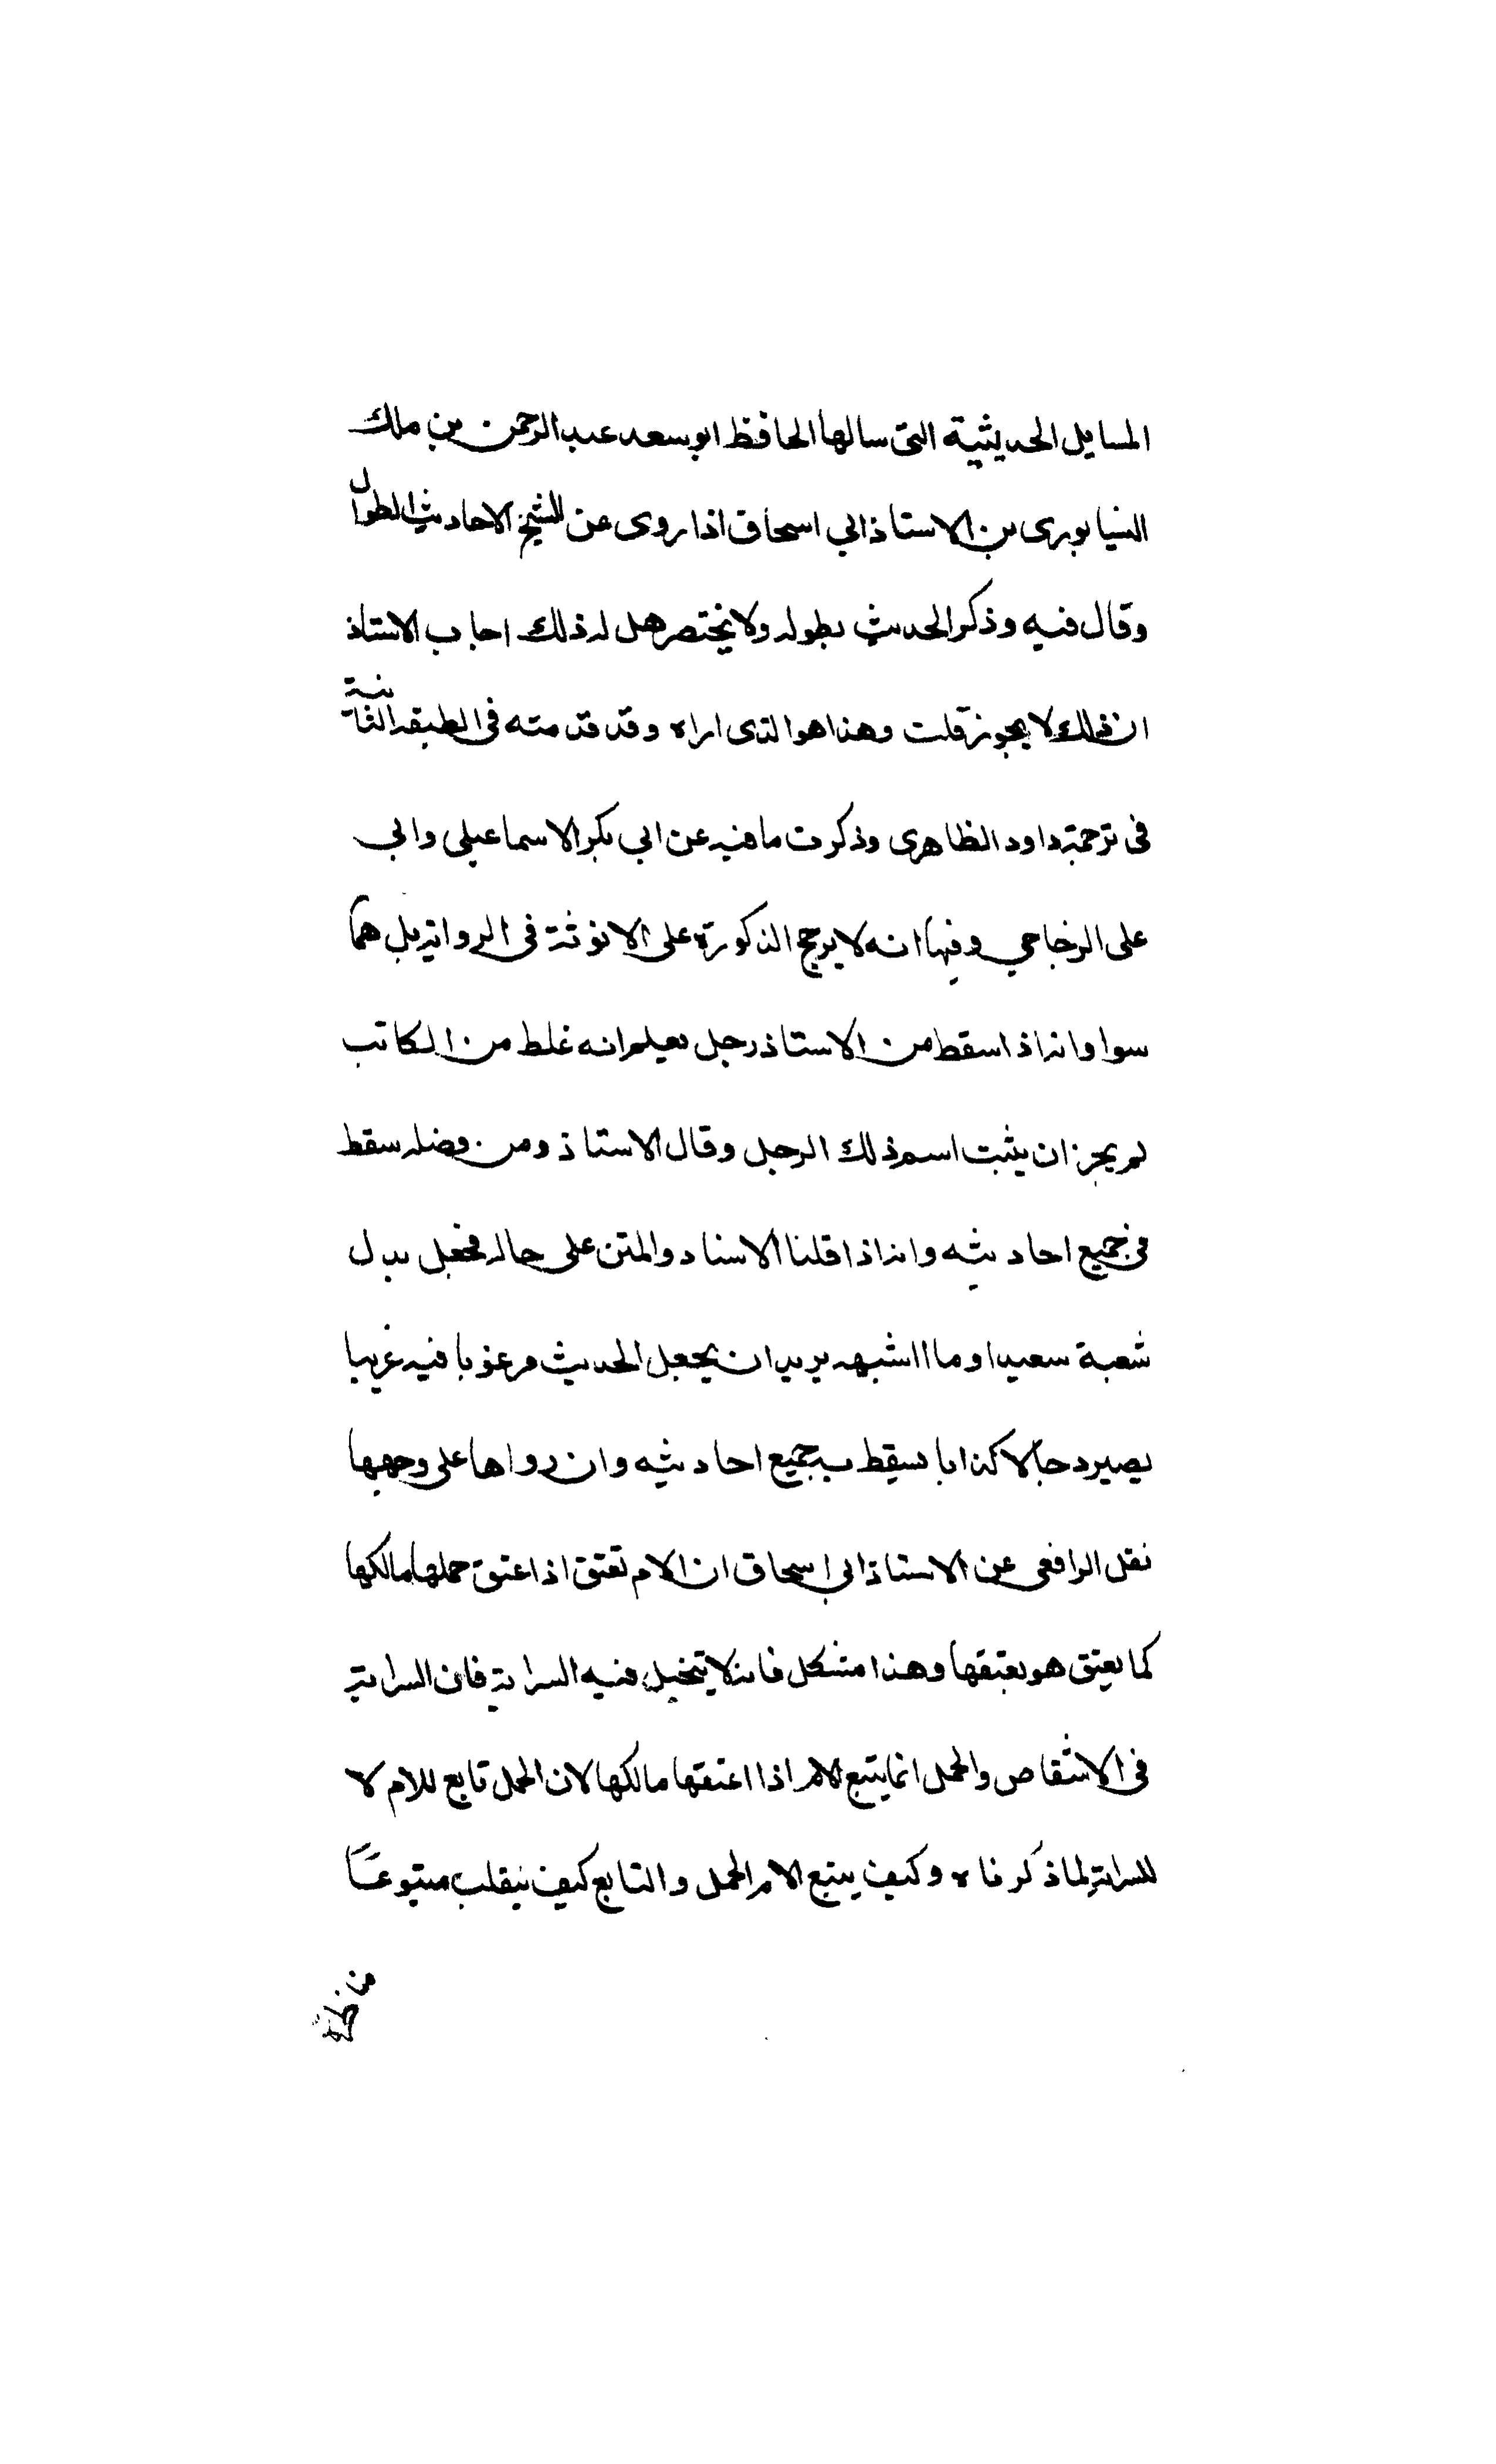 المسايل الحديثية التى سالها الحافظ ابو سعد عبد الرحمن بن ملك
النسيابورى من الاستاذ ابي اسحاق اذا روى عن الشيخ الاحاديث الطوال
وقال فيه وذكر الحديث بطوله ولا يختصر هل له ذلك اجاب الاستاذ
ان ذلك لا يجوز قلت وهذا هو الذى اراه وقد قدمته فى الطبقه الثانية
فى ترجمة داود الظاهرى وذكرت ما فيه عن ابي بكر الاسماعيلى وابي
على الزجاجي وفيها انه لا يرجح الذكورة على الانوثة فى الرواية بل هما
سوا وانه اذا سقط من الاستاذ رجل يعلم انه غلط من الكاتب
لم يجز ان يثبت اسم ذلك الرجل وقال الاستاذ ومن فضله سقط
فى جميع احاديثه وانه اذا قلنا الاسناد والمتن على حاله فجعل بدل
شعبة سعيدا وما اشبهه يريد ان يجعل الحديث مرغوبا فيه غريبا
يصير دجالا كذابا يسقط به جميع احاديثه وان رواها على وجهها
نقل الرافعى عن الاستاذ ابى اسحاق ان الام تعتق اذا عتق حملها مالكها
كما يعتق هو بعتقها وهذا مشكل فانه لا يتخيل فيه السراية فان السراية
فى الاشقاص والحمل انما يتبع الام اذا اعتقها مالكها لان الحمل تابع للام لا
للسراية لما ذكرناه وكيف يتبع الام الحمل والتابع كيف ينقلب متبوعًا